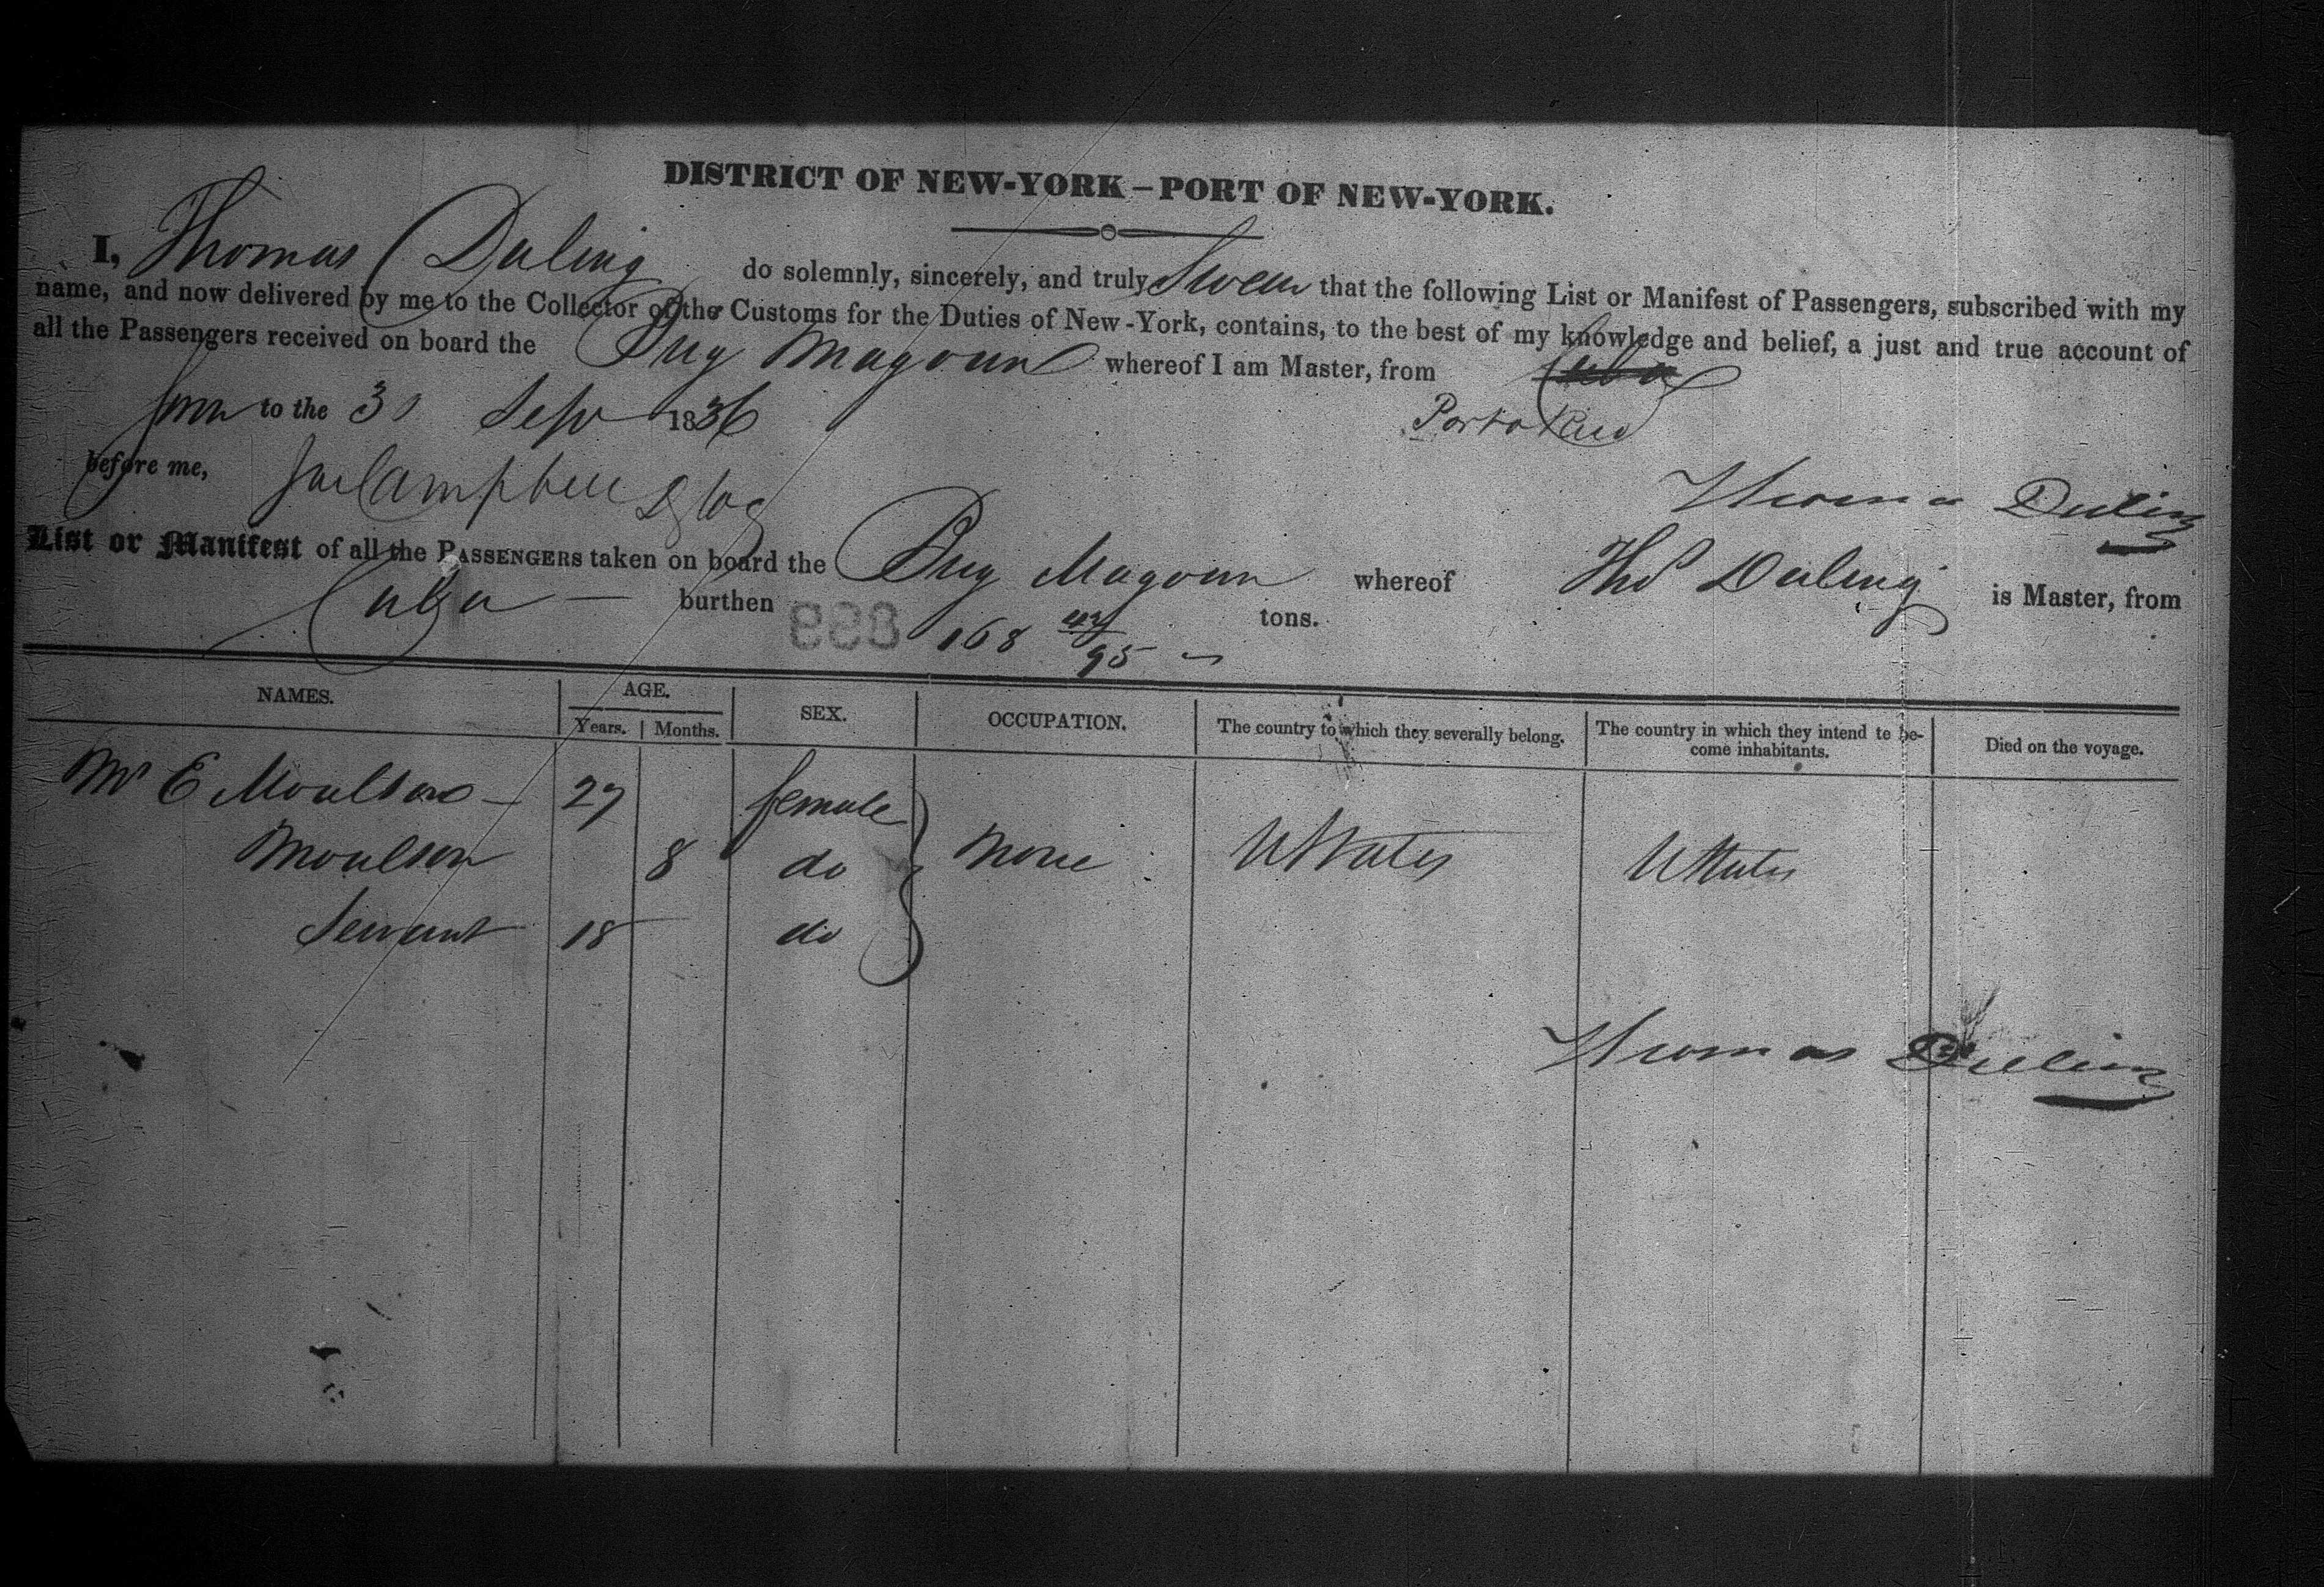 DISTRICT OF NEW-YORK—PORT OF NEW-YORK.
I, Thomas Duling do solemnly, sincerely, and truly Swear that the following List or Manifest of Passengers, subscribed with my
name, and now delivered by me to the Collector of the Customs for the Duties of New-York, contains, to the best of my knowledge and belief, a just and true account of
all the Passengers received on board the Brig Magoun whereof I am Master, from Cuba
Porto Rico
to the 30 Sep 1836
before me, Campbell
Thomas Duling
List or Manifest of all the PASSENGERS taken on board the Brig Magoun whereof Thos Duling is Master, from
Cuba — burthen 168 /95 tons.
NAMES. AGE. SEX. OCCUPATION. The country to which they severally belong. The country in which they intend to be-come inhabitants. Died on the voyage.
Years. Months.
Mrs E Moulson — 27 female
Moulson 8 do none UStates UStates
Servant 18 do
Thomas Duling